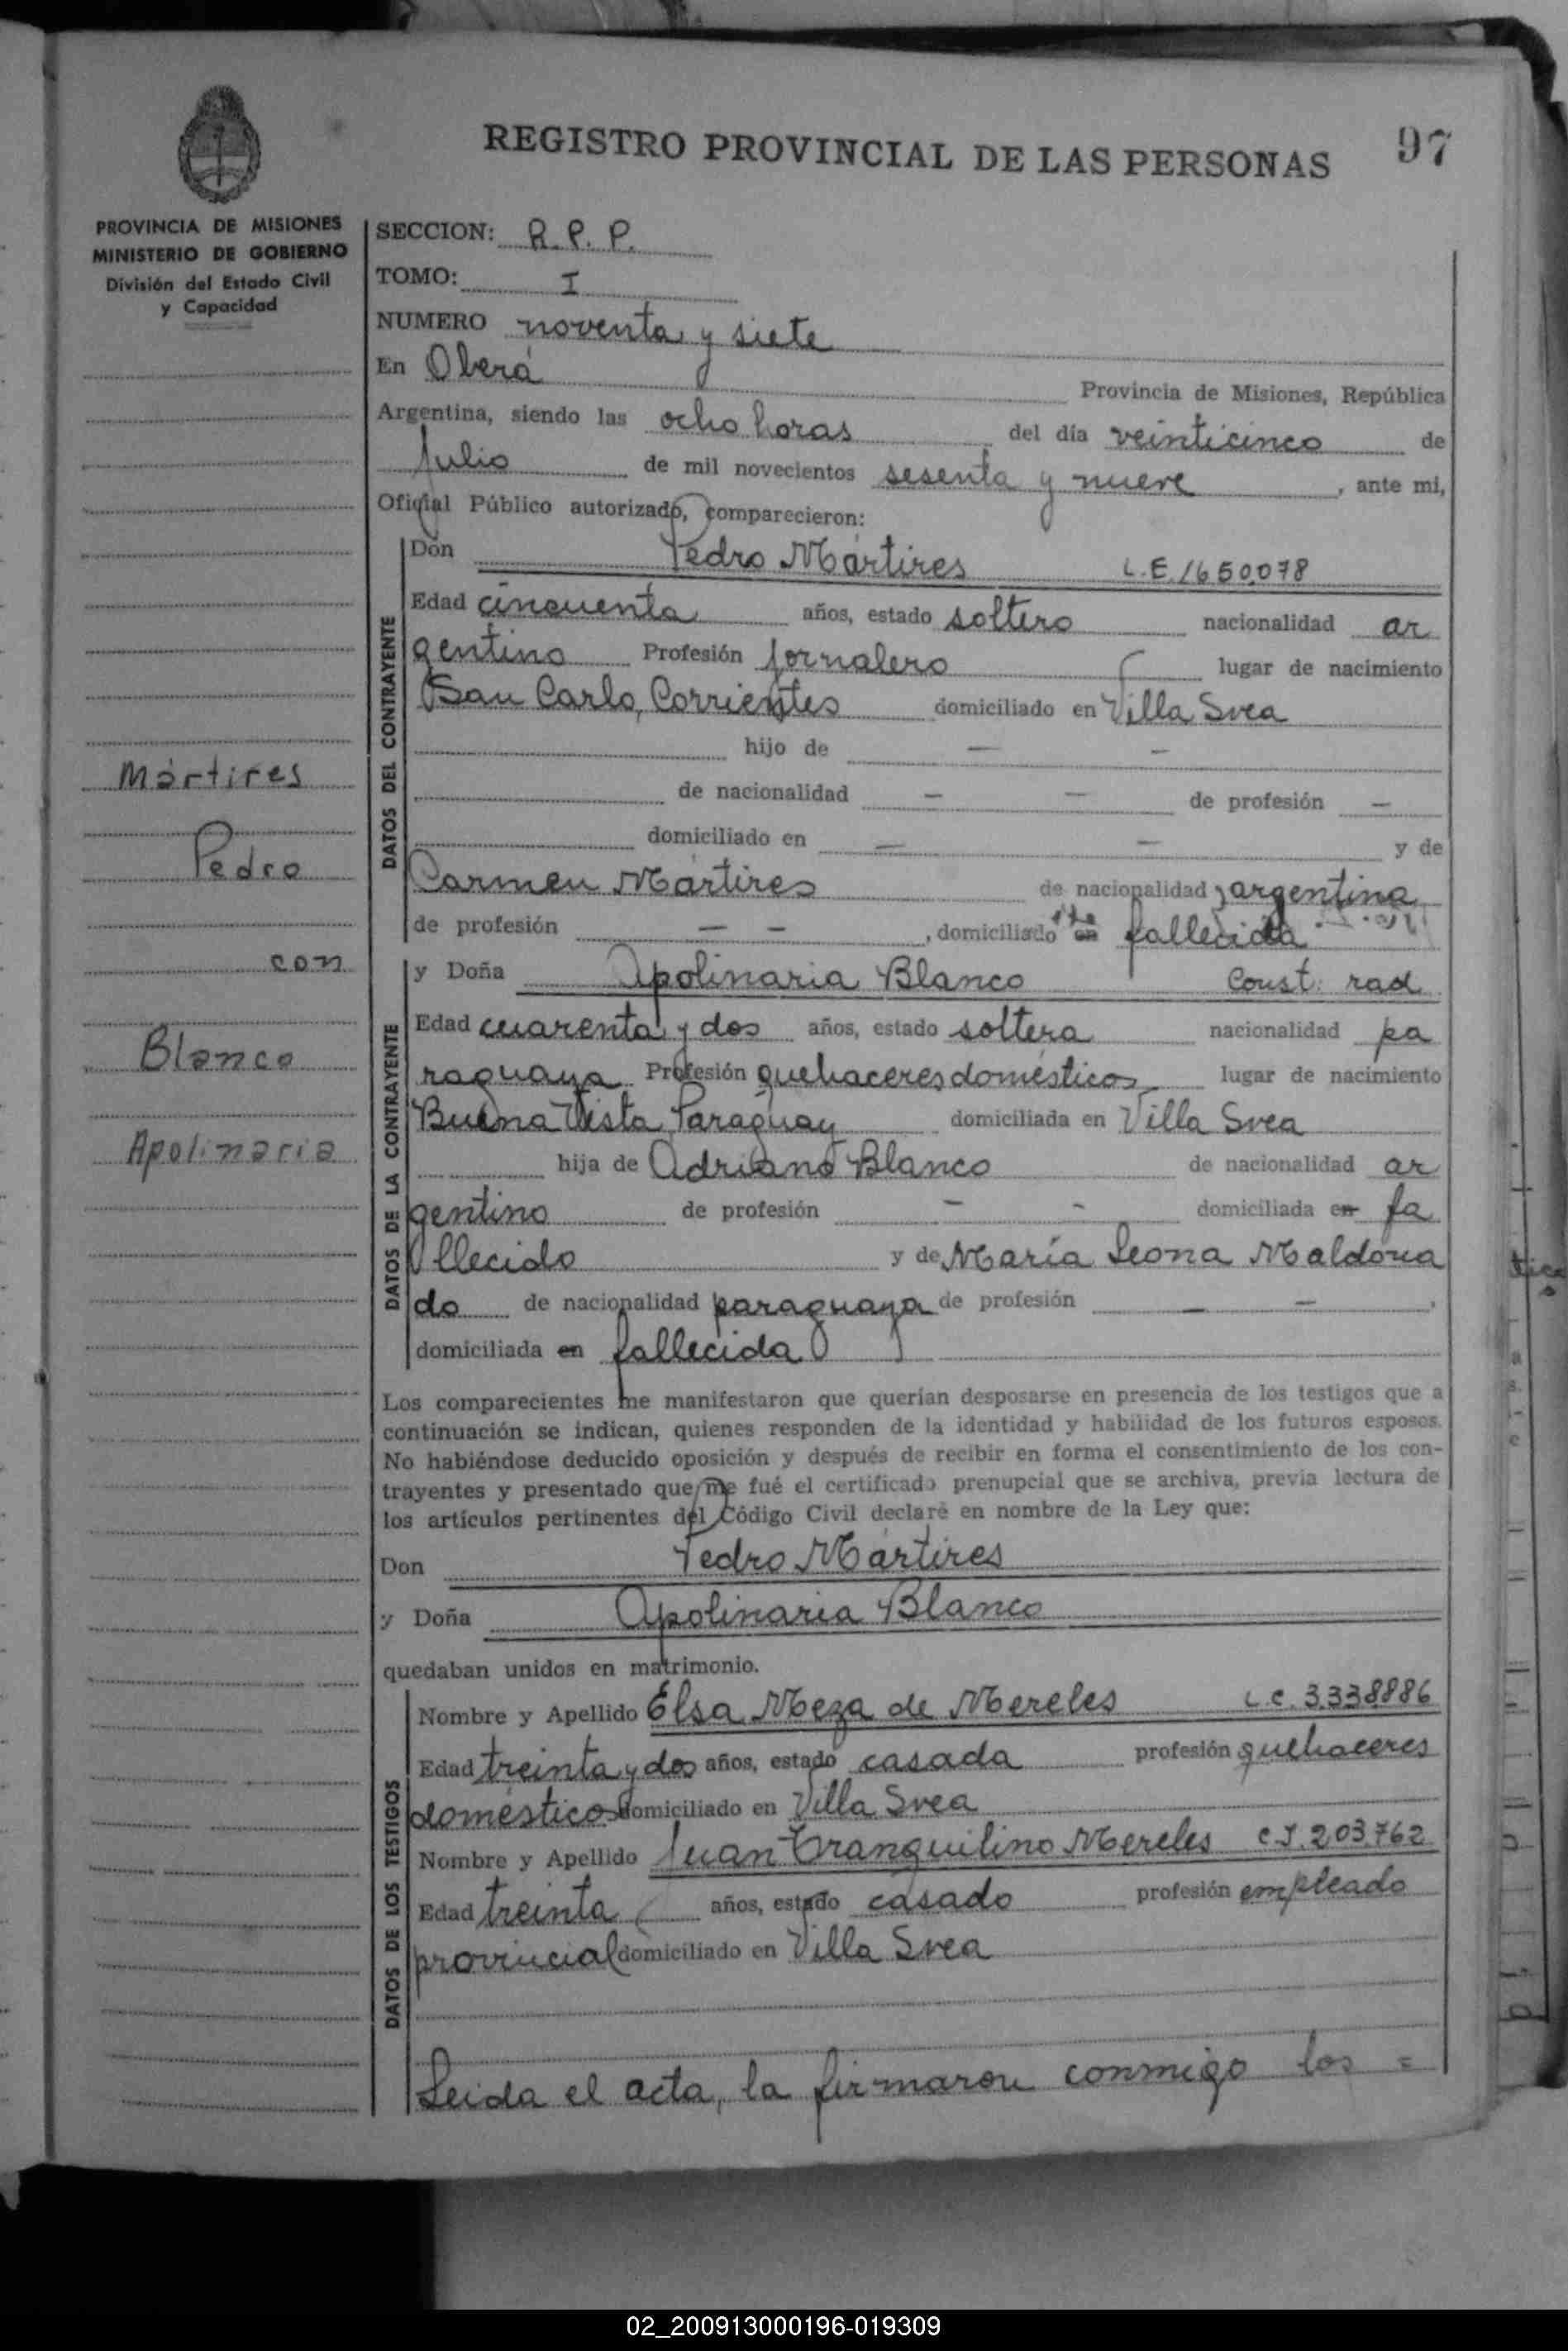 REGISTRO PROVINCIAL DE LAS PERSONAS 97
PROVINCIA DE MISIONES
MINISTERIO DE GOBIERNO
División del Estado Civil
y Capacidad
SECCION: R. P. P.
TOMO: I
NUMERO noventa y siete
En Oberá Provincia de Misiones, República
Argentina, siendo las ocho horas del día veinticinco de
Julio de mil novecientos sesenta y nueve, ante mi,
Oficial Público autorizado, comparecieron:
DATOS DEL CONTRAYENTE
Don Pedro Mártires L.E. 1650.078
Edad cincuenta años, estado soltero nacionalidad ar
gentino Profesión jornalero lugar de nacimiento
San Carlo, Corrientes domiciliado en Villa Svea
hijo de — —
de nacionalidad — — de profesión —
domiciliado en — — y de
Carmen Mártires de nacionalidad argentina
de profesión — —, domiciliado en fallecida
Mártires
Pedro
con
Blanco
Apolinaria
DATOS DE LA CONTRAYENTE
y Doña Apolinaria Blanco Const. rad
Edad cuarenta y dos años, estado soltera nacionalidad pa
raguaya Profesión quehaceres domésticos lugar de nacimiento
Buena Vista, Paraguay domiciliada en Villa Svea
hija de Adriano Blanco de nacionalidad ar
gentino de profesión — - domiciliada en fa
llecido y de María Leona Maldona
do de nacionalidad paraguaya de profesión — —,
domiciliada en fallecida
Los comparecientes me manifestaron que querían desposarse en presencia de los testigos que a
continuación se indican, quienes responden de la identidad y habilidad de los futuros esposos.
No habiéndose deducido oposición y después de recibir en forma el consentimiento de los con-
trayentes y presentado que me fué el certificado prenupcial que se archiva, previa lectura de
los artículos pertinentes del Código Civil declaré en nombre de la Ley que:
Don Pedro Mártires
y Doña Apolinaria Blanco
quedaban unidos en matrimonio.
DATOS DE LOS TESTIGOS
Nombre y Apellido Elsa Meza de Mereles L.C. 3.338.886
Edad treinta y dos años, estado casada profesión quehaceres
domésticos domiciliado en Villa Svea
Nombre y Apellido Juan Tranquilino Mereles C.I. 203.762
Edad treinta años, estado casado profesión empleado
provincial domiciliado en Villa Svea
Leida el acta, la firmaron conmigo los =
02_200913000196-019309